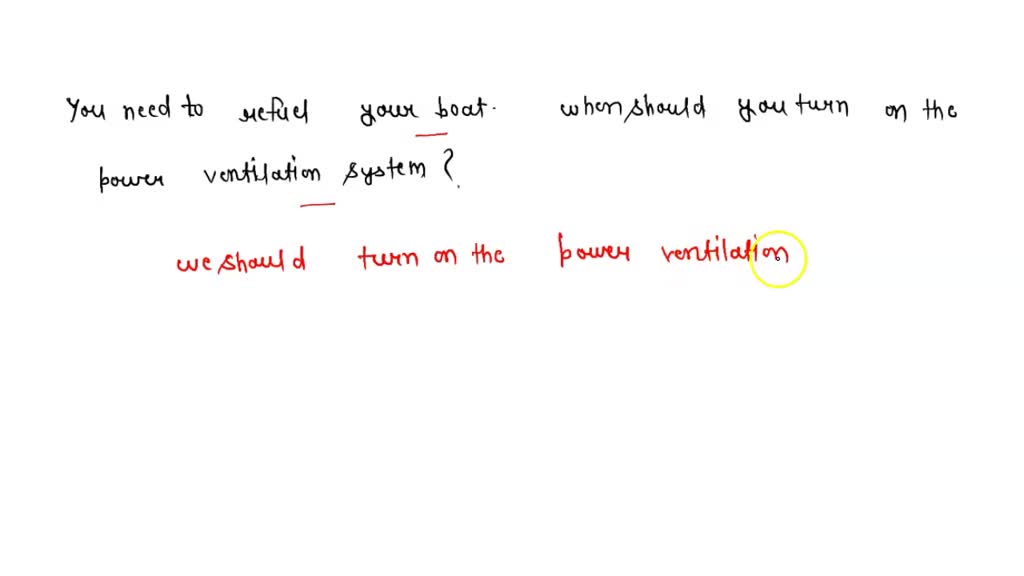 You need to refuel your boat. when should you turn on the
power ventilation system?
we should turn on the power ventilation